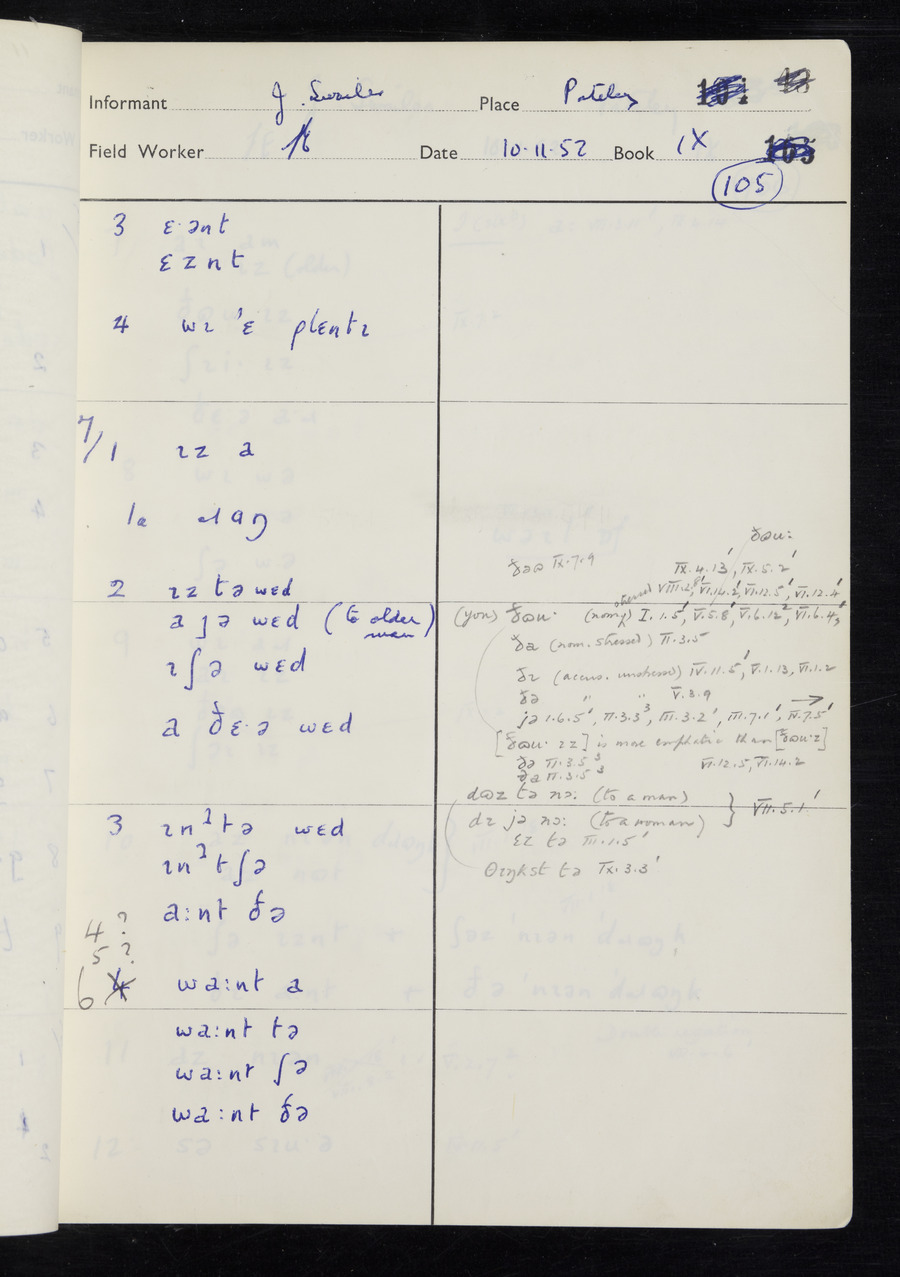 Informant J. Place Pateley
Field Worker Date 10.11.52 Book IX
105
3 ɛ·ənt
ɛznt
4 wɪ 'ɛ plɛntɪ
7/1 ɪz a
1a aŋ
2 ɪz tə wɛd
a jə wɛd (to older man)
ɪ ʃə wɛd
a ðɛ·ə wɛd
3 ɪnʔtə wɛd
ɪnʔtʃə
a:nt ðə
4 ?
5 ?
6 wa:nt a
wa:nt tə
wa:nt ʃə
wa:nt ðə
ðɷu:
IX.7.9
IX.4.13', IX.5.2'
stressed VIII.2.8', VI.14.2', VI.12.5', VI.12.4'
(you) ðɷu· (nom.) I.1.5', V.5.8', V.6.12², VI.6.4'
ða (nom. stressed) II.3.5
ðɪ (accus. unstressed) IV.11.5', V.1.13, VI.1.2
ðə " " V.3.9
jə 1.6.5', II.3.3³, III.3.2', III.7.1', IV.7.5'
[ðɷu· ɪz] is more emphatic than [ðɷu·z]
ðə II.3.5³ VI.12.5, VI.14.2
ða II.3.5³
dɷz tə nɔ: (to a man)
dɪ jə nɔ: (to a woman) } VII.5.1'
ɛz tə III.1.5'
θɪŋkst tə IX.3.3'